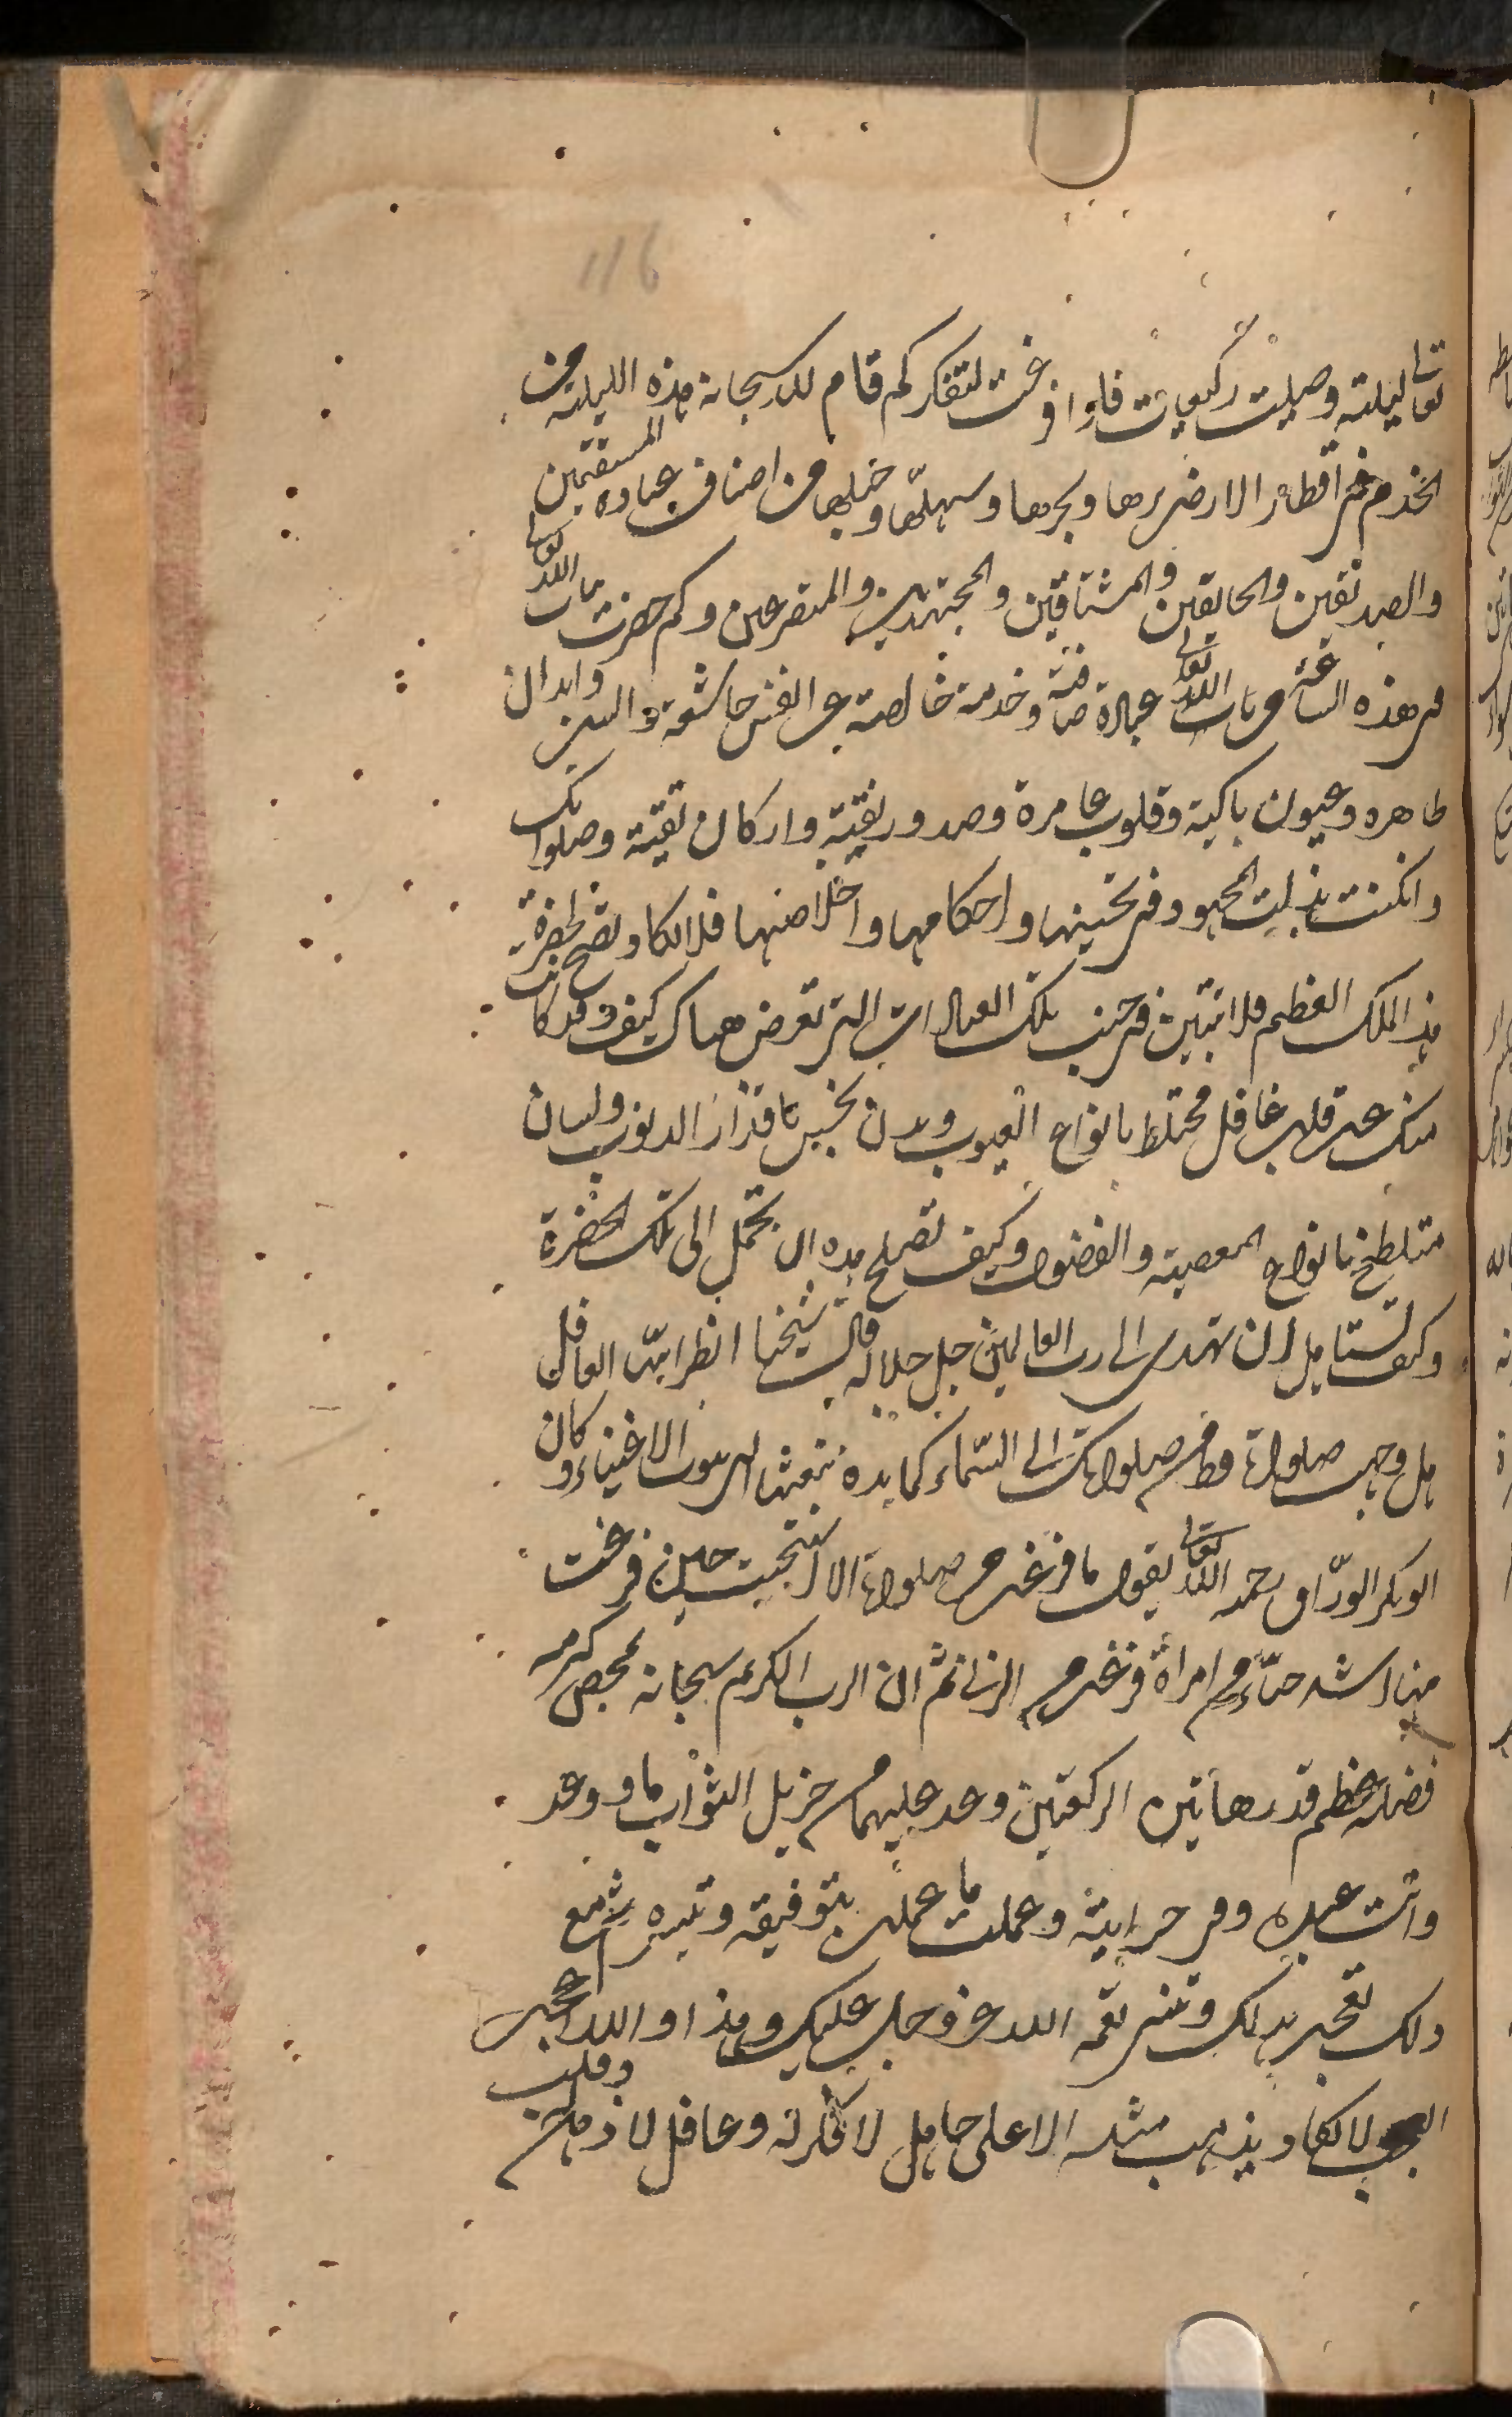 116
تعالى ليلته وصليت ركعات فاذا فرغت لتفكر كم قام لله سبحانه هذه الليلة من
الخدم في اقطار الارض برها وبحرها وسهلها وجبلها من اصناف عباده المستقيمين
والصديقين والخائفين والمشتاقين والمجتهدين والمتضرعين وكم حضرت باب الله تعالى
في هذه الساعة من باب الله تعالى عبادة صافية وخدمة خالصة عن انفس خاشعة والسن وابدان
طاهرة وعيون باكية وقلوب عامرة وصدور نقية واركان تقية وصلواتك
وان كنت بذلت المجهود في تحسينها واحكامها واخلاصها فلا تكاد تصلح لحضرة
هذا الملك العظيم فلا تتبين في جنب تلك العبادات التي تعرض هناك كيف وقد كانت
منك عن قلب غافل مختلط بانواع العيوب وبدن نجس باقذار الذنوب ولسان
متلطخ بانواع المعصية والفضول وكيف تصلح هذه ان تحمل الى تلك الحضرة
وكيف تستاهل ان تهدى الى رب العالمين جل جلاله قال شيخنا انظر ايها العاقل
هل وجهت صلواة قط من صلواتك الى السماء كمائدة تبعثها الى بيوت الاغنياء وكان
ابو بكر الوراق رحمه الله تعالى يقول ما فرغت من صلواة الا استحييت حين فرغت
منها اشد حياء من امراة فرغت من الزنا ثم ان الرب الكريم سبحانه بمحض كرمه
فضله عظم قدر هاتين الركعتين وعد عليهما من جزيل الثواب ما وعد
وانت عبده وفي جرايته وعملت ما عملت بتوفيقه وتيسيره ثم مع
ذلك تعجب بذلك وتنسى نعمة الله عز وجل عليك وهذا والله اعجب
العجب لا يكاد يذهب مثله الا على جاهل لا فكر له وغافل لا ذهن له وقلب